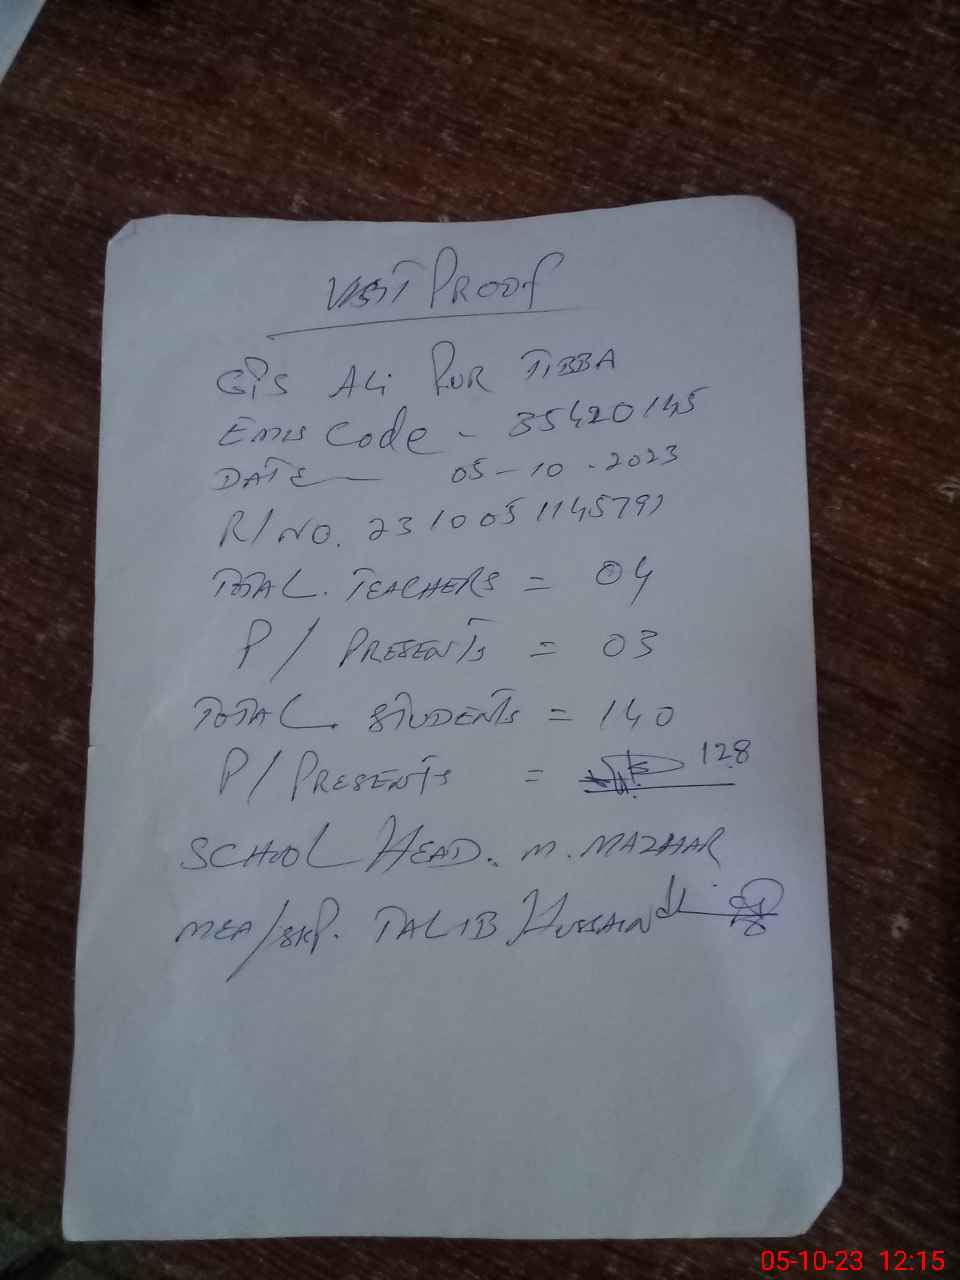 VISIT PROOF
GPS ALi PUR TIBBA
Emis Code - 35420145
DATE — 05-10-2023
R/NO. 231005114579
TOTAL. TEACHERS = 04
P/PRESENTS = 03
TOTAL. STUDENTS = 140
P/PRESENTS = 128
SCHOOL HEAD. M. MAZHAR
MEA/SKP. TALIB HUSSAIN
05-10-23 12:15